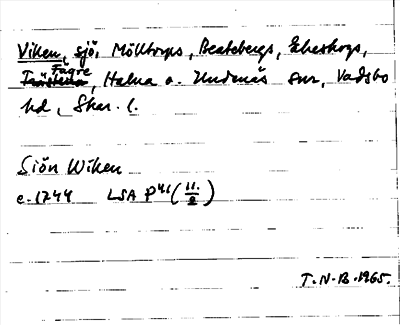 Viken, sjö, Mölltorps, Beatebergs, Ekeskogs,
Fägre, Halna o. Undenäs snr, Vadsbo
hd, Skar. l.
Siön Wiken
e. 1744 LSA P41 (11:/2)
T.N-B. 1965.